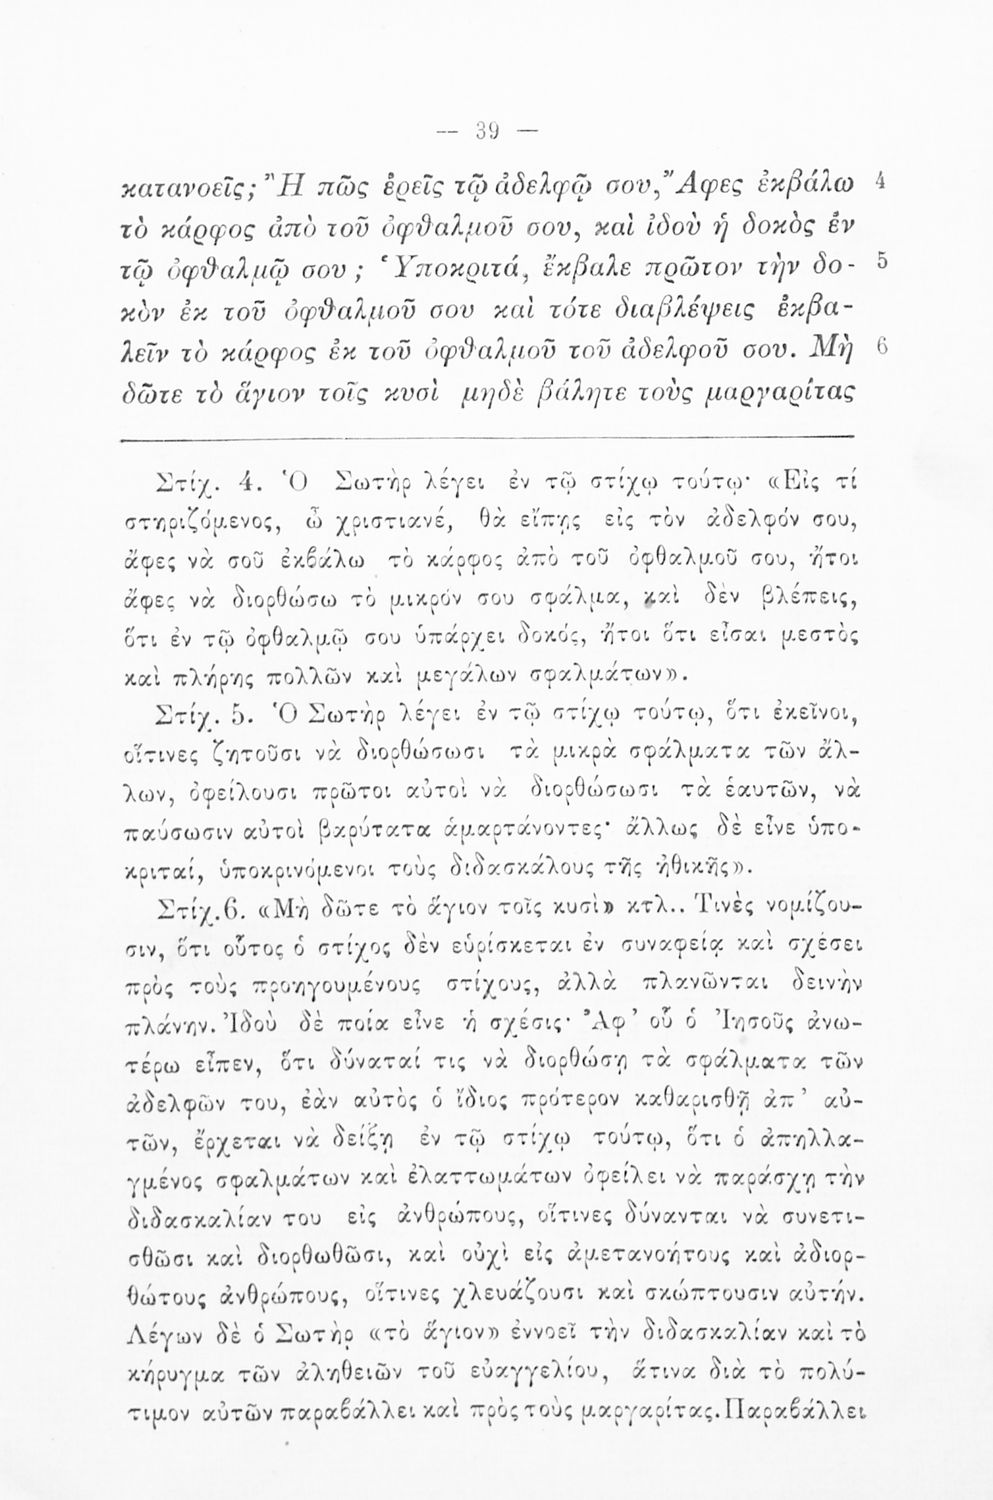 — 39 —
κατανοεῖς; Ἢ πῶς ἐρεῖς τῷ ἀδελφῷ σου, Ἄφες ἐκβάλω 4
τὸ κάρφος ἀπὸ τοῦ ὀφθαλμοῦ σου, καὶ ἰδοὺ ἡ δοκὸς ἐν
τῷ ὀφθαλμῷ σου; Ὑποκριτά, ἔκβαλε πρῶτον τὴν δο- 5
κὸν ἐκ τοῦ ὀφθαλμοῦ σου καὶ τότε διαβλέψεις ἐκβα-
λεῖν τὸ κάρφος ἐκ τοῦ ὀφθαλμοῦ τοῦ ἀδελφοῦ σου. Μὴ 6
δῶτε τὸ ἅγιον τοῖς κυσὶ μηδὲ βάλητε τοὺς μαργαρίτας
Στίχ. 4. Ὁ Σωτὴρ λέγει ἐν τῷ στίχῳ τούτῳ· «Εἰς τί
στηριζόμενος, ὦ χριστιανέ, θὰ εἴπῃς εἰς τὸν ἀδελφόν σου,
ἄφες νὰ σοῦ ἐκβάλω τὸ κάρφος ἀπὸ τοῦ ὀφθαλμοῦ σου, ἤτοι
ἄφες νὰ διορθώσω τὸ μικρόν σου σφάλμα, καὶ δὲν βλέπεις,
ὅτι ἐν τῷ ὀφθαλμῷ σου ὑπάρχει δοκός, ἤτοι ὅτι εἶσαι μεστὸς
καὶ πλήρης πολλῶν καὶ μεγάλων σφαλμάτων».
Στίχ. 5. Ὁ Σωτὴρ λέγει ἐν τῷ στίχῳ τούτῳ, ὅτι ἐκεῖνοι,
οἵτινες ζητοῦσι νὰ διορθώσωσι τὰ μικρὰ σφάλματα τῶν ἄλ-
λων, ὀφείλουσι πρῶτοι αὐτοὶ νὰ διορθώσωσι τὰ ἑαυτῶν, νὰ
παύσωσιν αὐτοὶ βαρύτατα ἁμαρτάνοντες· ἄλλως δὲ εἶνε ὑπο-
κριταί, ὑποκρινόμενοι τοὺς διδασκάλους τῆς ἠθικῆς».
Στίχ.6. «Μὴ δῶτε τὸ ἅγιον τοῖς κυσὶ» κτλ.. Τινὲς νομίζου-
σιν, ὅτι οὗτος ὁ στίχος δὲν εὑρίσκεται ἐν συναφείᾳ καὶ σχέσει
πρὸς τοὺς προηγουμένους στίχους, ἀλλὰ πλανῶνται δεινὴν
πλάνην. Ἰδοὺ δὲ ποία εἶνε ἡ σχέσις· Ἀφ' οὗ ὁ Ἰησοῦς ἀνω-
τέρω εἶπεν, ὅτι δύναταί τις νὰ διορθώσῃ τὰ σφάλματα τῶν
ἀδελφῶν του, ἐὰν αὐτὸς ὁ ἴδιος πρότερον καθαρισθῇ ἀπ' αὐ-
τῶν, ἔρχεται νὰ δείξῃ ἐν τῷ στίχῳ τούτῳ, ὅτι ὁ ἀπηλλα-
γμένος σφαλμάτων καὶ ἐλαττωμάτων ὀφείλει νὰ παράσχῃ τὴν
διδασκαλίαν του εἰς ἀνθρώπους, οἵτινες δύνανται νὰ συνετι-
σθῶσι καὶ διορθωθῶσι, καὶ οὐχὶ εἰς ἀμετανοήτους καὶ ἀδιορ-
θώτους ἀνθρώπους, οἵτινες χλευάζουσι καὶ σκώπτουσιν αὐτήν.
Λέγων δὲ ὁ Σωτὴρ «τὸ ἅγιον» ἐννοεῖ τὴν διδασκαλίαν καὶ τὸ
κήρυγμα τῶν ἀληθειῶν τοῦ εὐαγγελίου, ἅτινα διὰ τὸ πολύ-
τιμον αὐτῶν παραβάλλει καὶ πρὸς τοὺς μαργαρίτας. Παραβάλλει